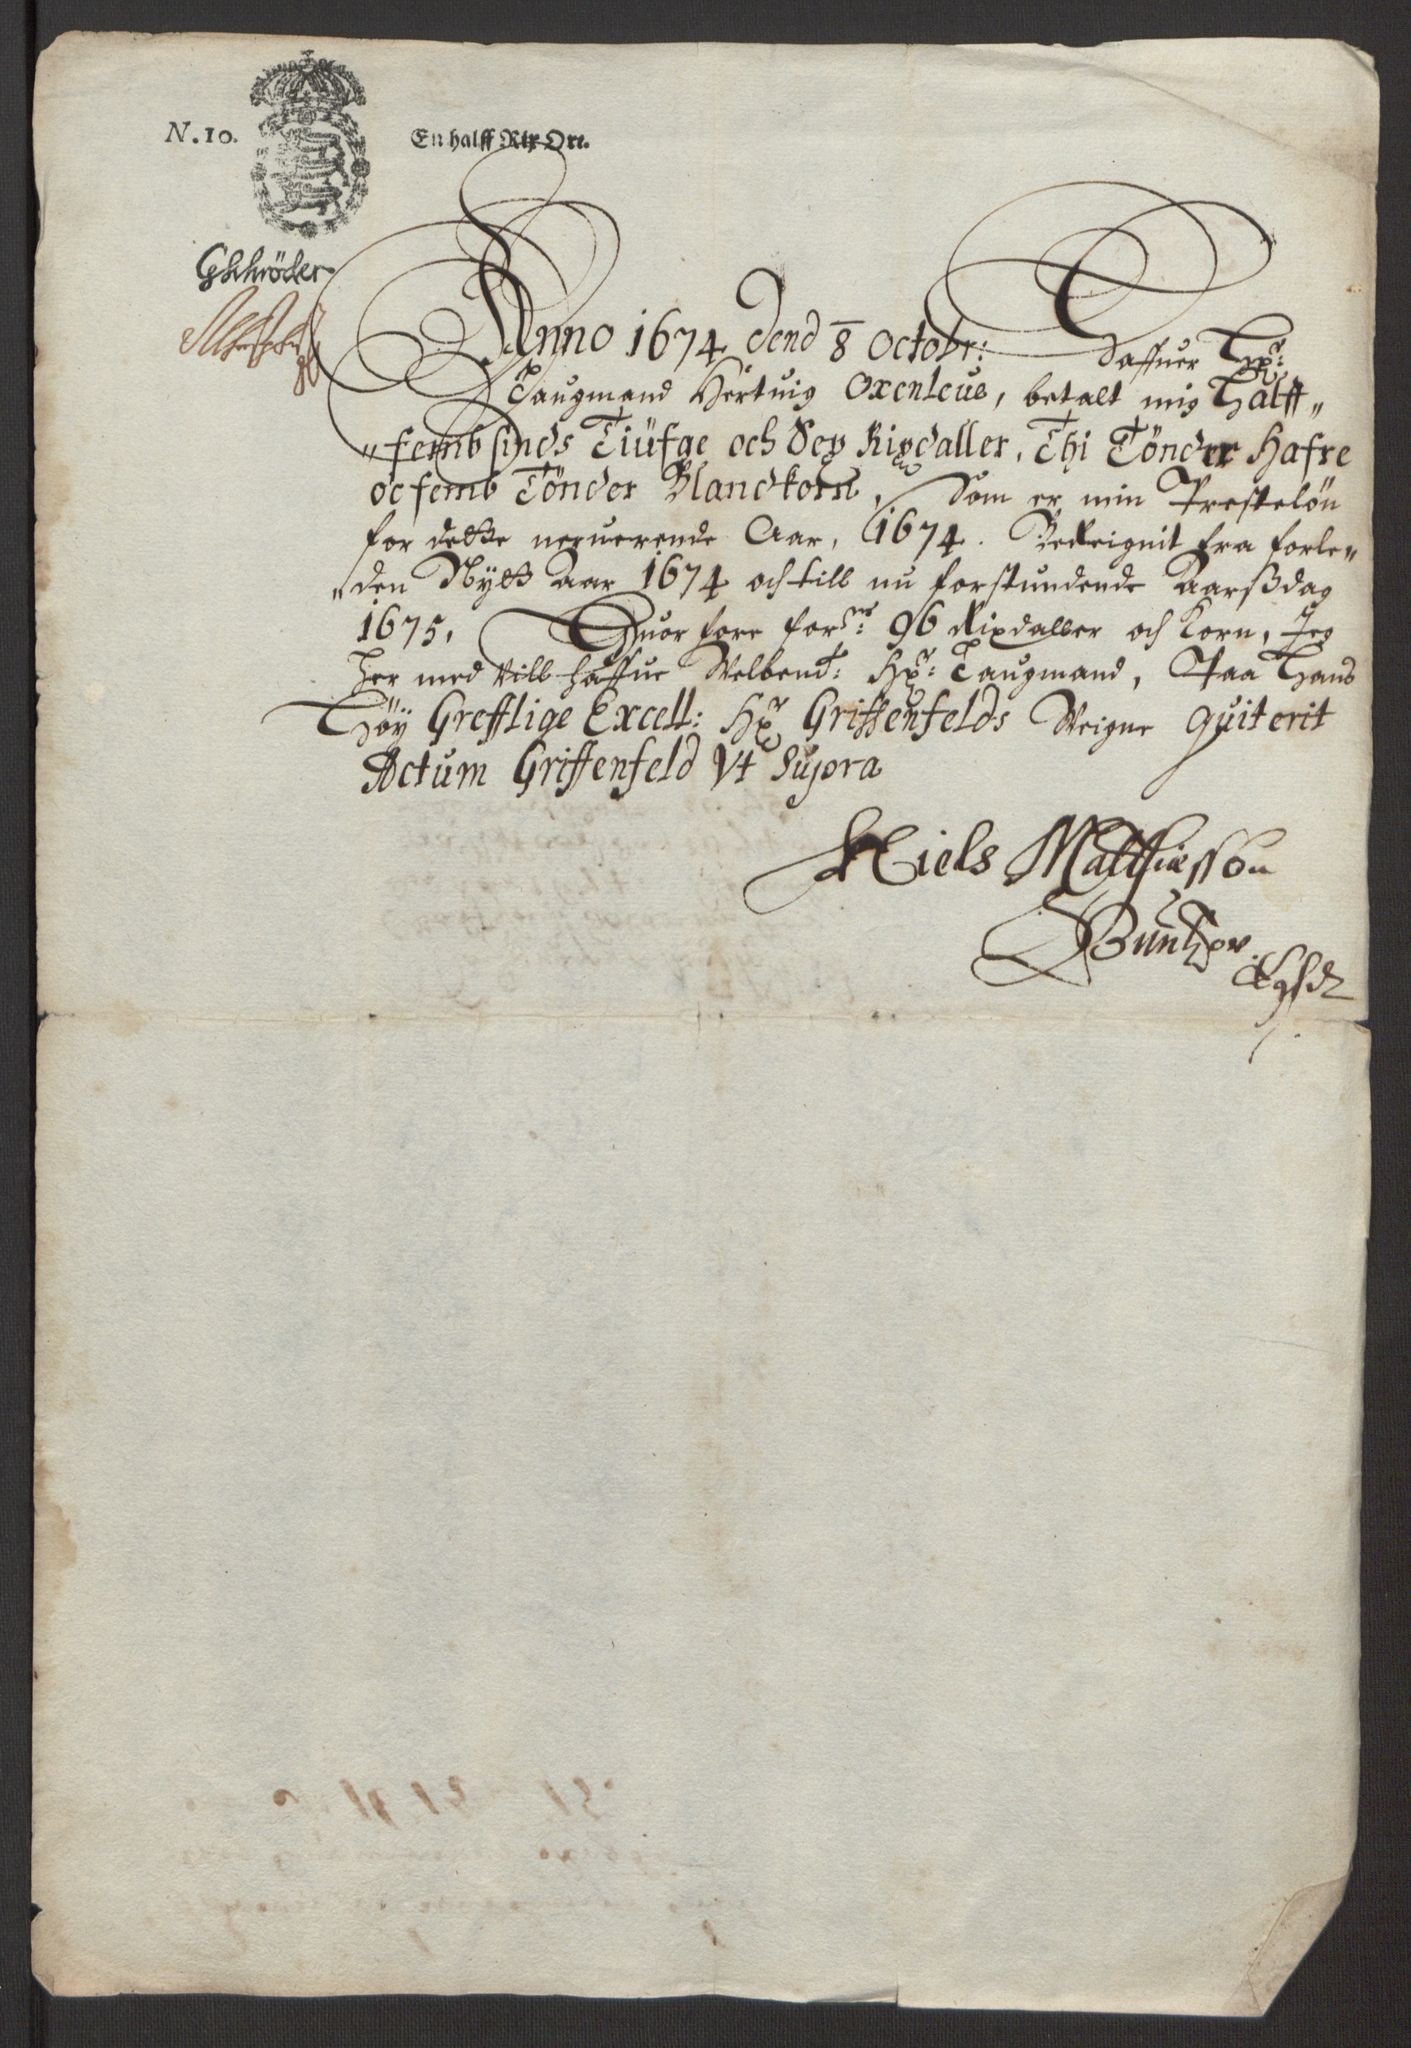 N. 10.
En halff Rtx Ort.
GSchröder
Anno 1674 Dend 8 Octobr: Haffuer Hr:
Laugmand Hertuig Oxenleue, betalt mig Halff„
„femb sinds Tiüfge och Sex Rixdaller, Thi Tönder Hafre
oc femb Tönder Blandkorn, Som er min Presteløn
for dette neruerende Aar, 1674. Bereignit fra forle„
„den Nytt Aar 1674 och till nu forstundende Aarßdag
1675, Huor fore forne: 96 Rixdaller och Korn, Jeg
her med vill haffue Velbemt: Hr: Laugmand, Paa Hans
Høy Grefflige Excell: Hr Griffenfelds Veigne quiterit
Actum Griffenfeld Vt Supra
Niels Matthiesson